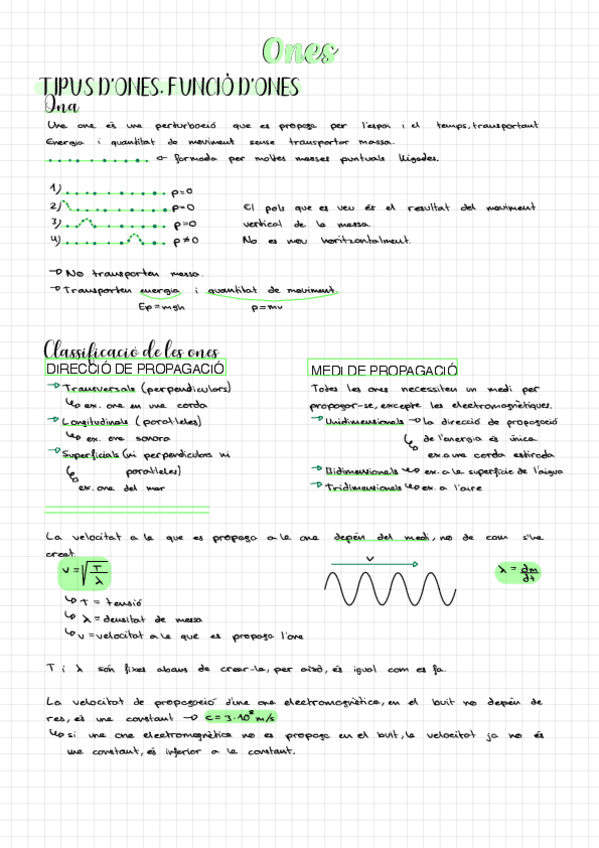 Ones
TIPUS D'ONES. FUNCIÓ D'ONES
Ona
Una ona és una perturbació que es propaga per l'espai i el temps, transportant
Energia i quantitat de moviment sense transportar massa.
formada per moltes masses puntuals lligades.
1) p=0
2) p=0 El pols que es veu és el resultat del moviment
3) p=0 vertical de la massa.
4) p≠0 No es mou horitzontalment.
→ No transporten massa.
→ Transporten energia i quantitat de moviment.
Ep=mgh p=mv
Classificació de les ones
DIRECCIÓ DE PROPAGACIÓ
→ Transversals (perpendiculars)
↳ ex. ona en una corda
→ Longitudinals (paral·leles)
↳ ex. ona sonora
→ Superficials (ni perpendiculars ni
paral·leles)
↳ ex. ona del mar
MEDI DE PROPAGACIÓ
Totes les ones necessiten un medi per
propagar-se, excepte les electromagnètiques.
→ Unidimensionals → la direcció de propagació
↳ de l'energia és única
ex. a una corda estirada
→ Bidimensionals ↳ ex. a la superfície de l'aigua
→ Tridimensionals ↳ ex. a l'aire
La velocitat a la que es propaga a la ona depèn del medi, no de com s'ha
creat.
v = √(T/λ) v λ = dm/dt
↳ T = tensió
↳ λ = densitat de massa
↳ v = velocitat a la que es propaga l'ona
T i λ són fixes abans de crear-la, per això, és igual com es fa.
La velocitat de propagació d'una ona electromagnètica, en el buit no depèn de
res, és una constant → c = 3·10⁸ m/s
↳ si una ona electromagnètica no es propaga en el buit, la velocitat ja no és
una constant, és inferior a la constant.